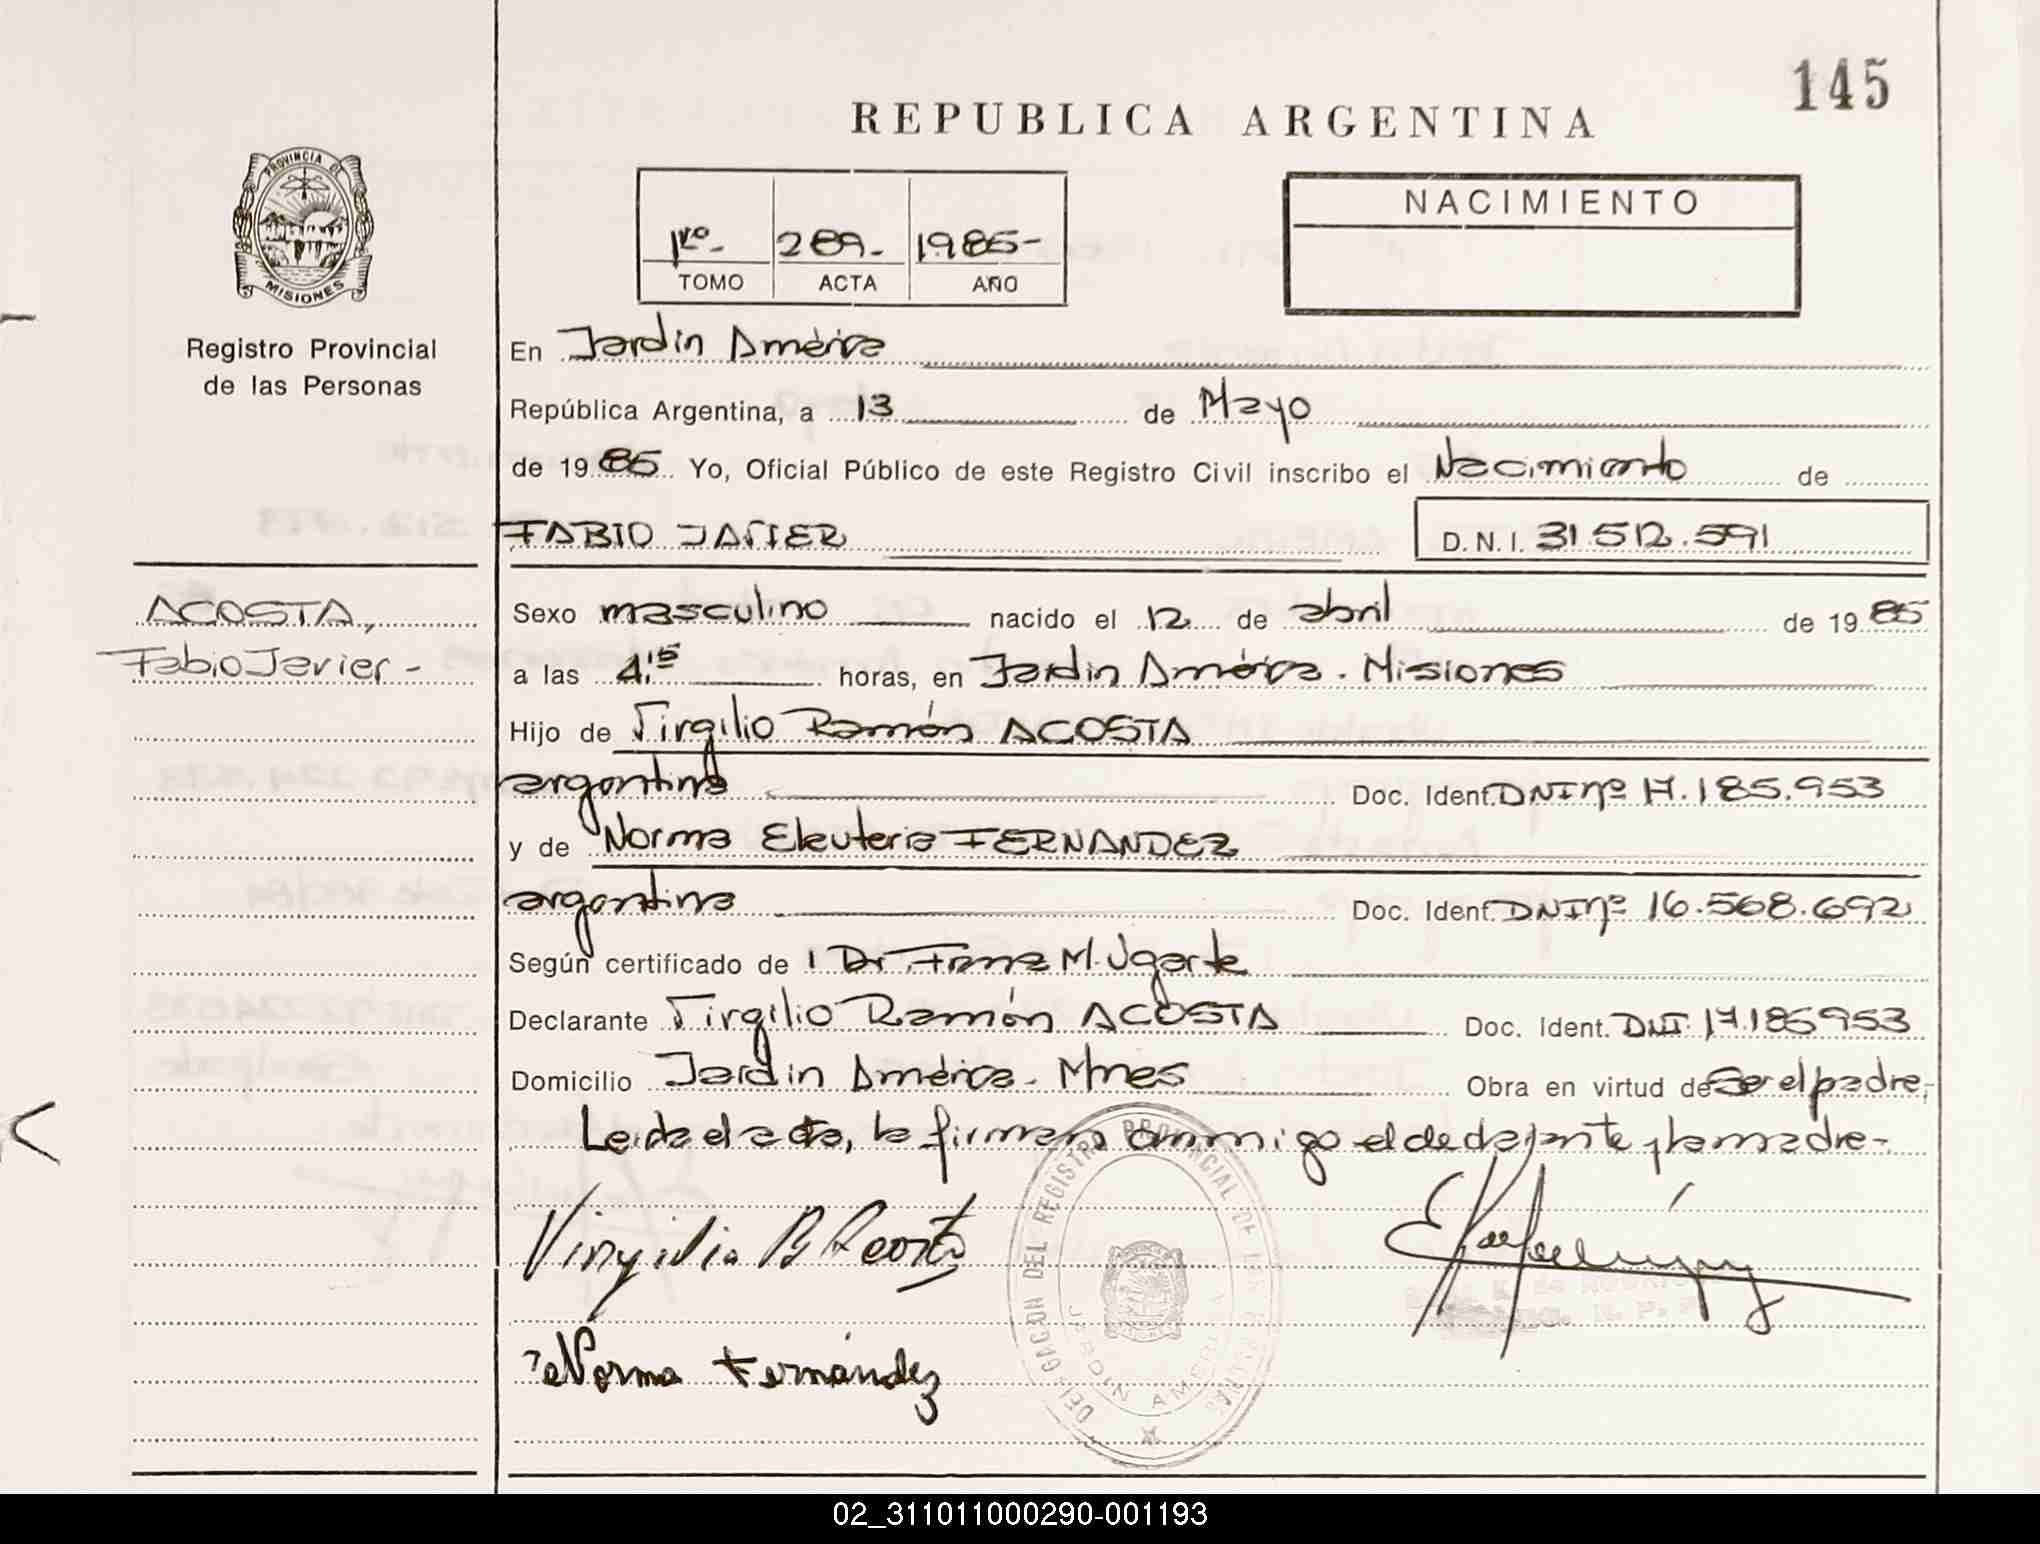 145
REPUBLICA ARGENTINA
PROVINCIA DE
MISIONES
Registro Provincial
de las Personas
1ro.- 289.- 1985-
TOMO ACTA AÑO
NACIMIENTO
En Jardín América
República Argentina, a 13 de Mayo
de 1985 Yo, Oficial Público de este Registro Civil inscribo el Nacimiento de
FABIO JAVIER D.N.I. 31.512.591
ACOSTA,
Fabio Javier -
Sexo masculino nacido el 12 de abril de 1985
a las 4,15 horas, en Jardín América. Misiones
Hijo de Virgilio Ramón ACOSTA
argentino Doc. Ident. DNI nº 17.185.953
y de Norma Eleuteria FERNANDEZ
argentina Doc. Ident. DNI nº 16.568.692
Según certificado de Dr. M. Ugarte
Declarante Virgilio Ramón ACOSTA Doc. Ident. DNI 17.185953
Domicilio Jardín América. Mnes Obra en virtud de Ser el padre.
Leída el acta, la firman conmigo el declarante y la madre-.
Virgilio R Acosta
Norma Fernández
DELEGACION DEL REGISTRO PROVINCIAL DE LAS PERSONAS
JARDIN AMERICA
02_311011000290-001193